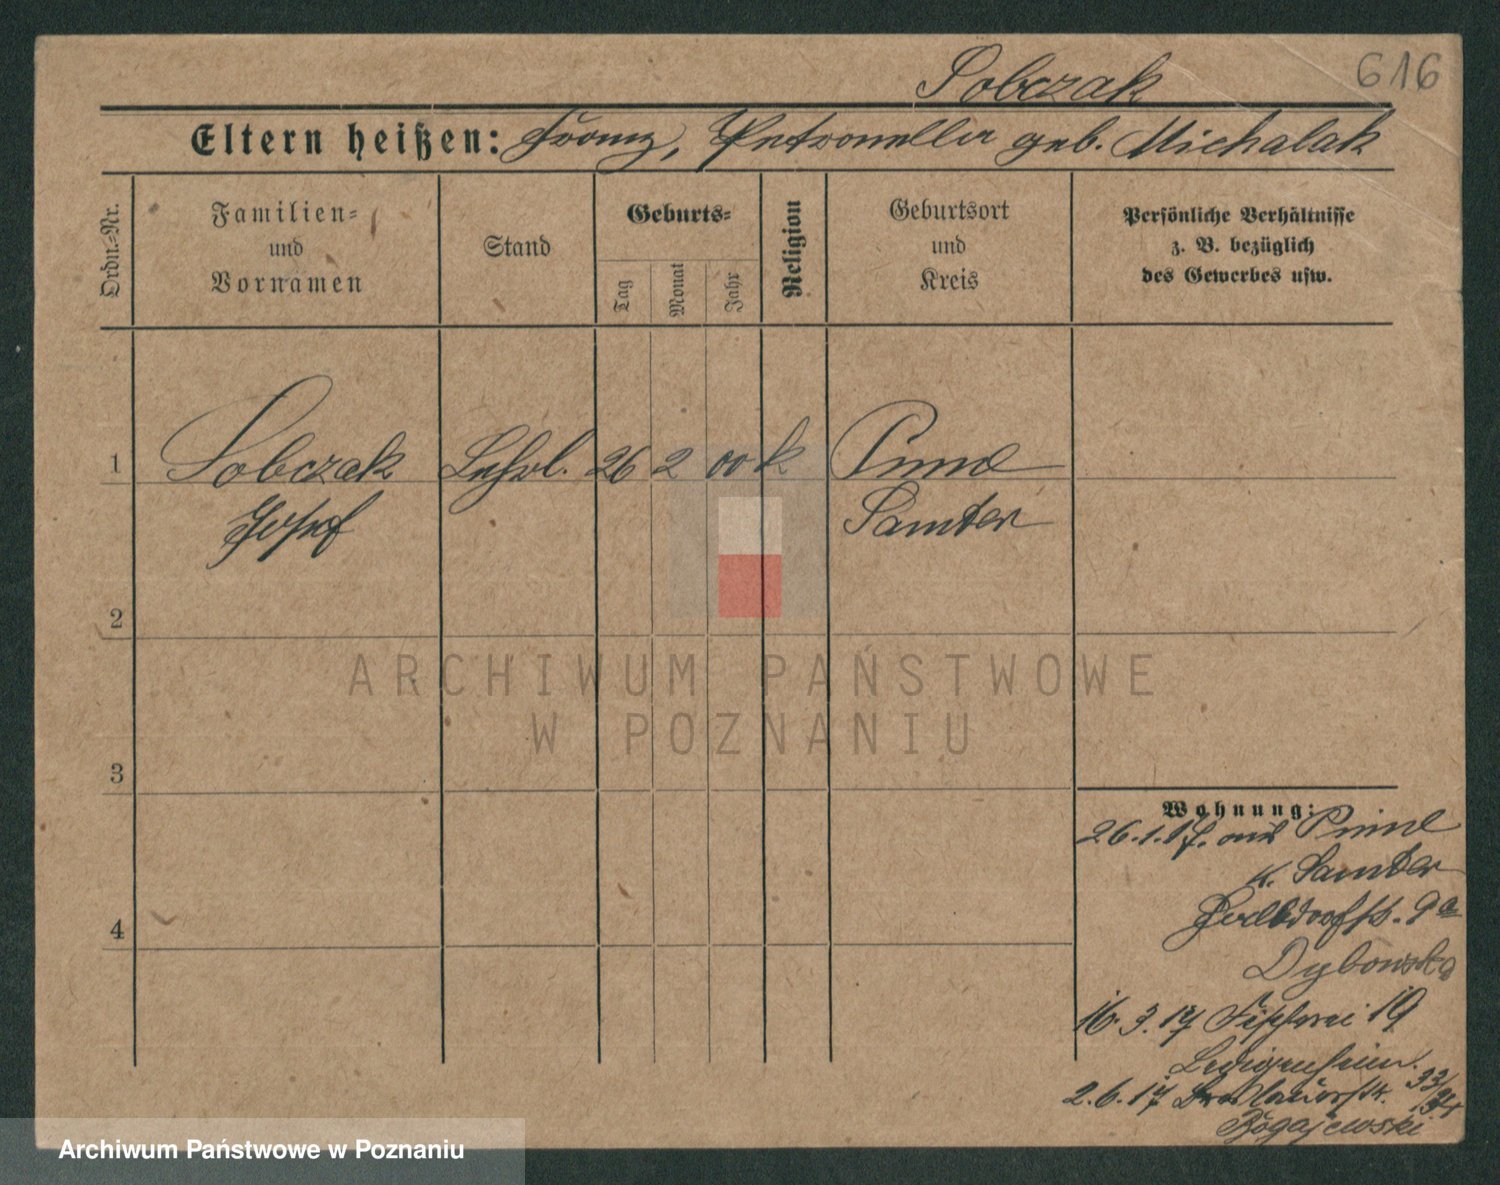 Sobczak 616
Eltern heißen: Franz, Petronella geb. Michalak
Ordn.-Nr.
Familien-
und
Vornamen
Stand
Geburts-
Tag
Monat
Jahr
Religion
Geburtsort
und
Kreis
Persönliche Verhältnisse
z. B. bezüglich
des Gewerbes usw.
1 Sobczak Lehrl. 26 2 00 k Pinne
Josef Samter
2
3
4
ARCHIWUM PAŃSTWOWE
W POZNANIU
Wohnung:
26.1.17. aus Pinne
K. Samter
9a
Dybowska
16.3.17 Fischerei 19
Ledigenheim
2.6.17 33/34
Rogajewski
Archiwum Państwowe w Poznaniu